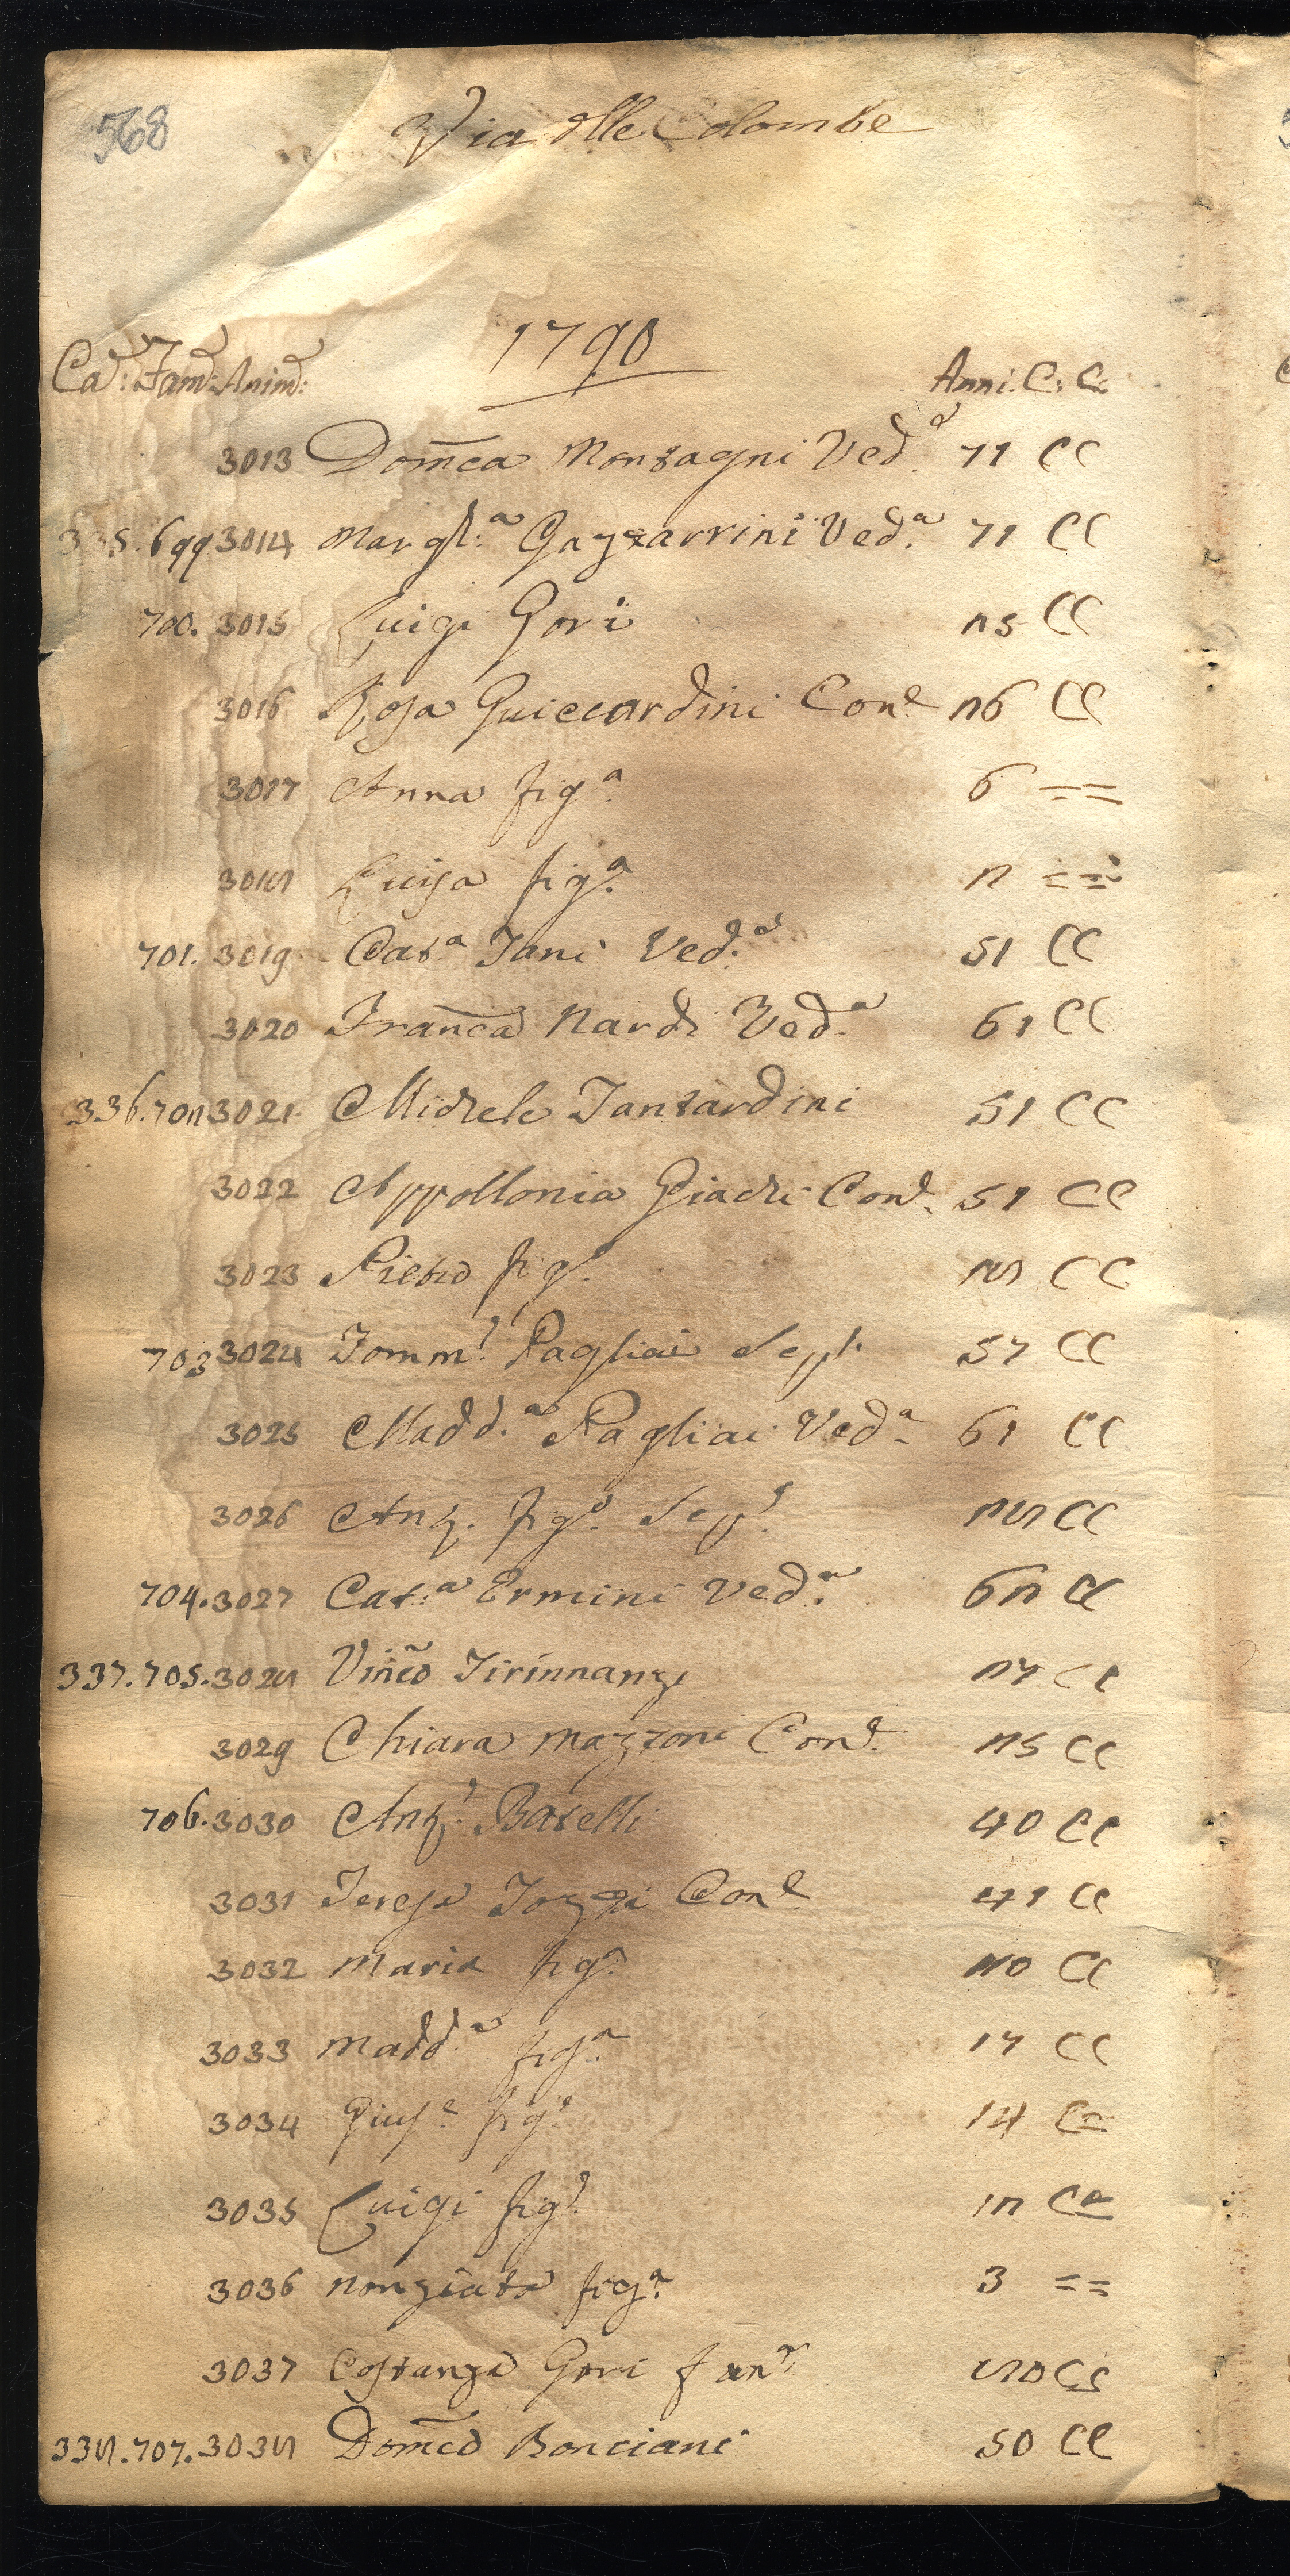 568
Via dlle Colombe
1790
Ca: Fam: Anim: Anni. C: C:
3013 Domca Montagni Ved.a 71 CC
335. 699 3014 Margh.a Gazzarrini Ved.a 71 CC
700. 3015 Luigi Gori 25 CC
3016 Rosa Guiccardini Cone 26 CC
3017 Anna fig.a 6 ==
3018 Luisa fig.a 2 ==
701. 3019 Cat.a Tani Ved.a 51 CC
3020 Franca Nardi Ved.a 61 CC
336. 702 3021. Michele Tantardini 51 CC
3022 Appollonia Giachi Cone. 51 CC
3023 Pietro figo. 28 CC
703 3024 Tommo. Pagliai 57 CC
3025 Madd.a Pagliai Ved.a 61 CC
3026 Anto. figo. 28 CC
704. 3027 Cat.a Ermini Ved.a 62 CC
337. 705. 3028 Vinco Tirinnanzi 27 CC
3029 Chiara Mazzoni Cone. 25 CC
706. 3030 Anto. Batelli 40 CC
3031 Teresa Tozzi Cone 41 CC
3032 Maria fig.a 20 CC
3033 Madd.a fig.a 17 CC
3034 Giuse. figo. 14 C=
3035 Luigi figo. 12 C=
3036 Nonziata fig.a 3 ==
3037 Costanza Gori 80 CC
338. 707. 3038 Domco Bonciani 50 CC